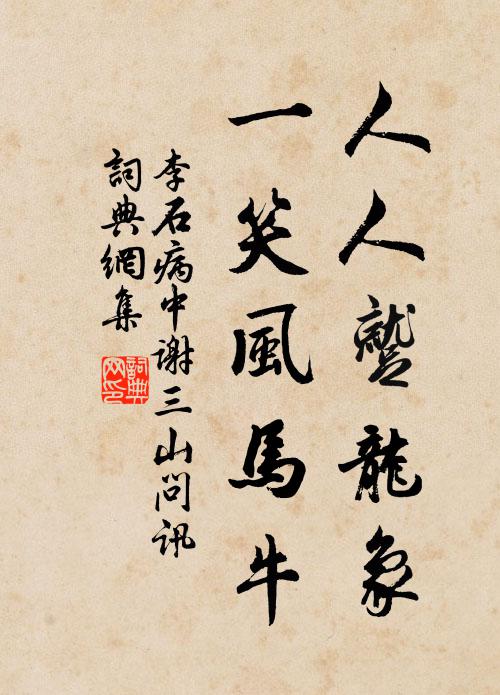 人人蹵龍象
一笑風馬牛
李石病中謝三山問訊
詞典網集
詞典
网印